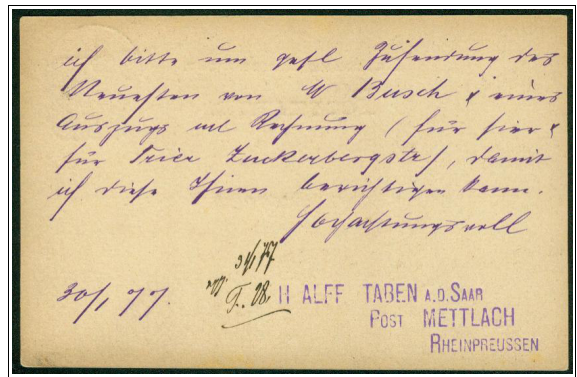 ich bitte um gefl Zusendung des
Neuesten von W Busch & eines
Auszugs Rechnung (für hier &
für Trier Zuckerbergstr), damit
ich diese Ihnen berichtigen kann.
Hochachtungsvoll
30/1 77.
H ALFF TABEN A.D. SAAR
POST METTLACH
RHEINPREUSSEN